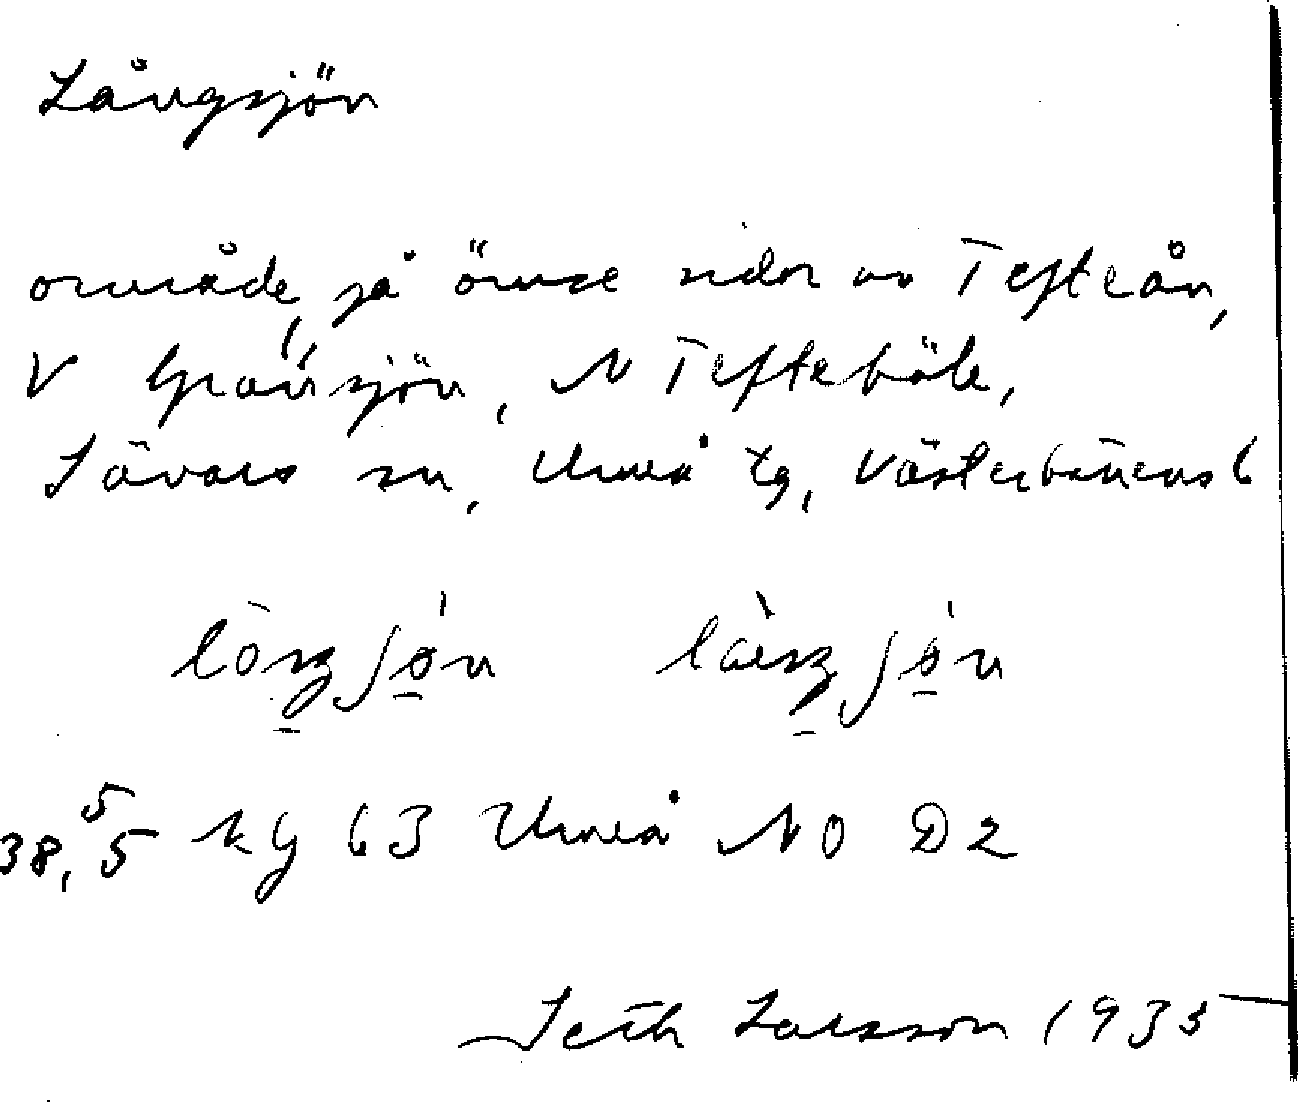 Långsjön
område, på ömse sidor av Tefteån,
V Gransjön, N Tefteböle,
Sävars sn, Umeå tg, Västerbottens l
38,5 kg 63 Umeå NO D2
Seth Larsson 1935